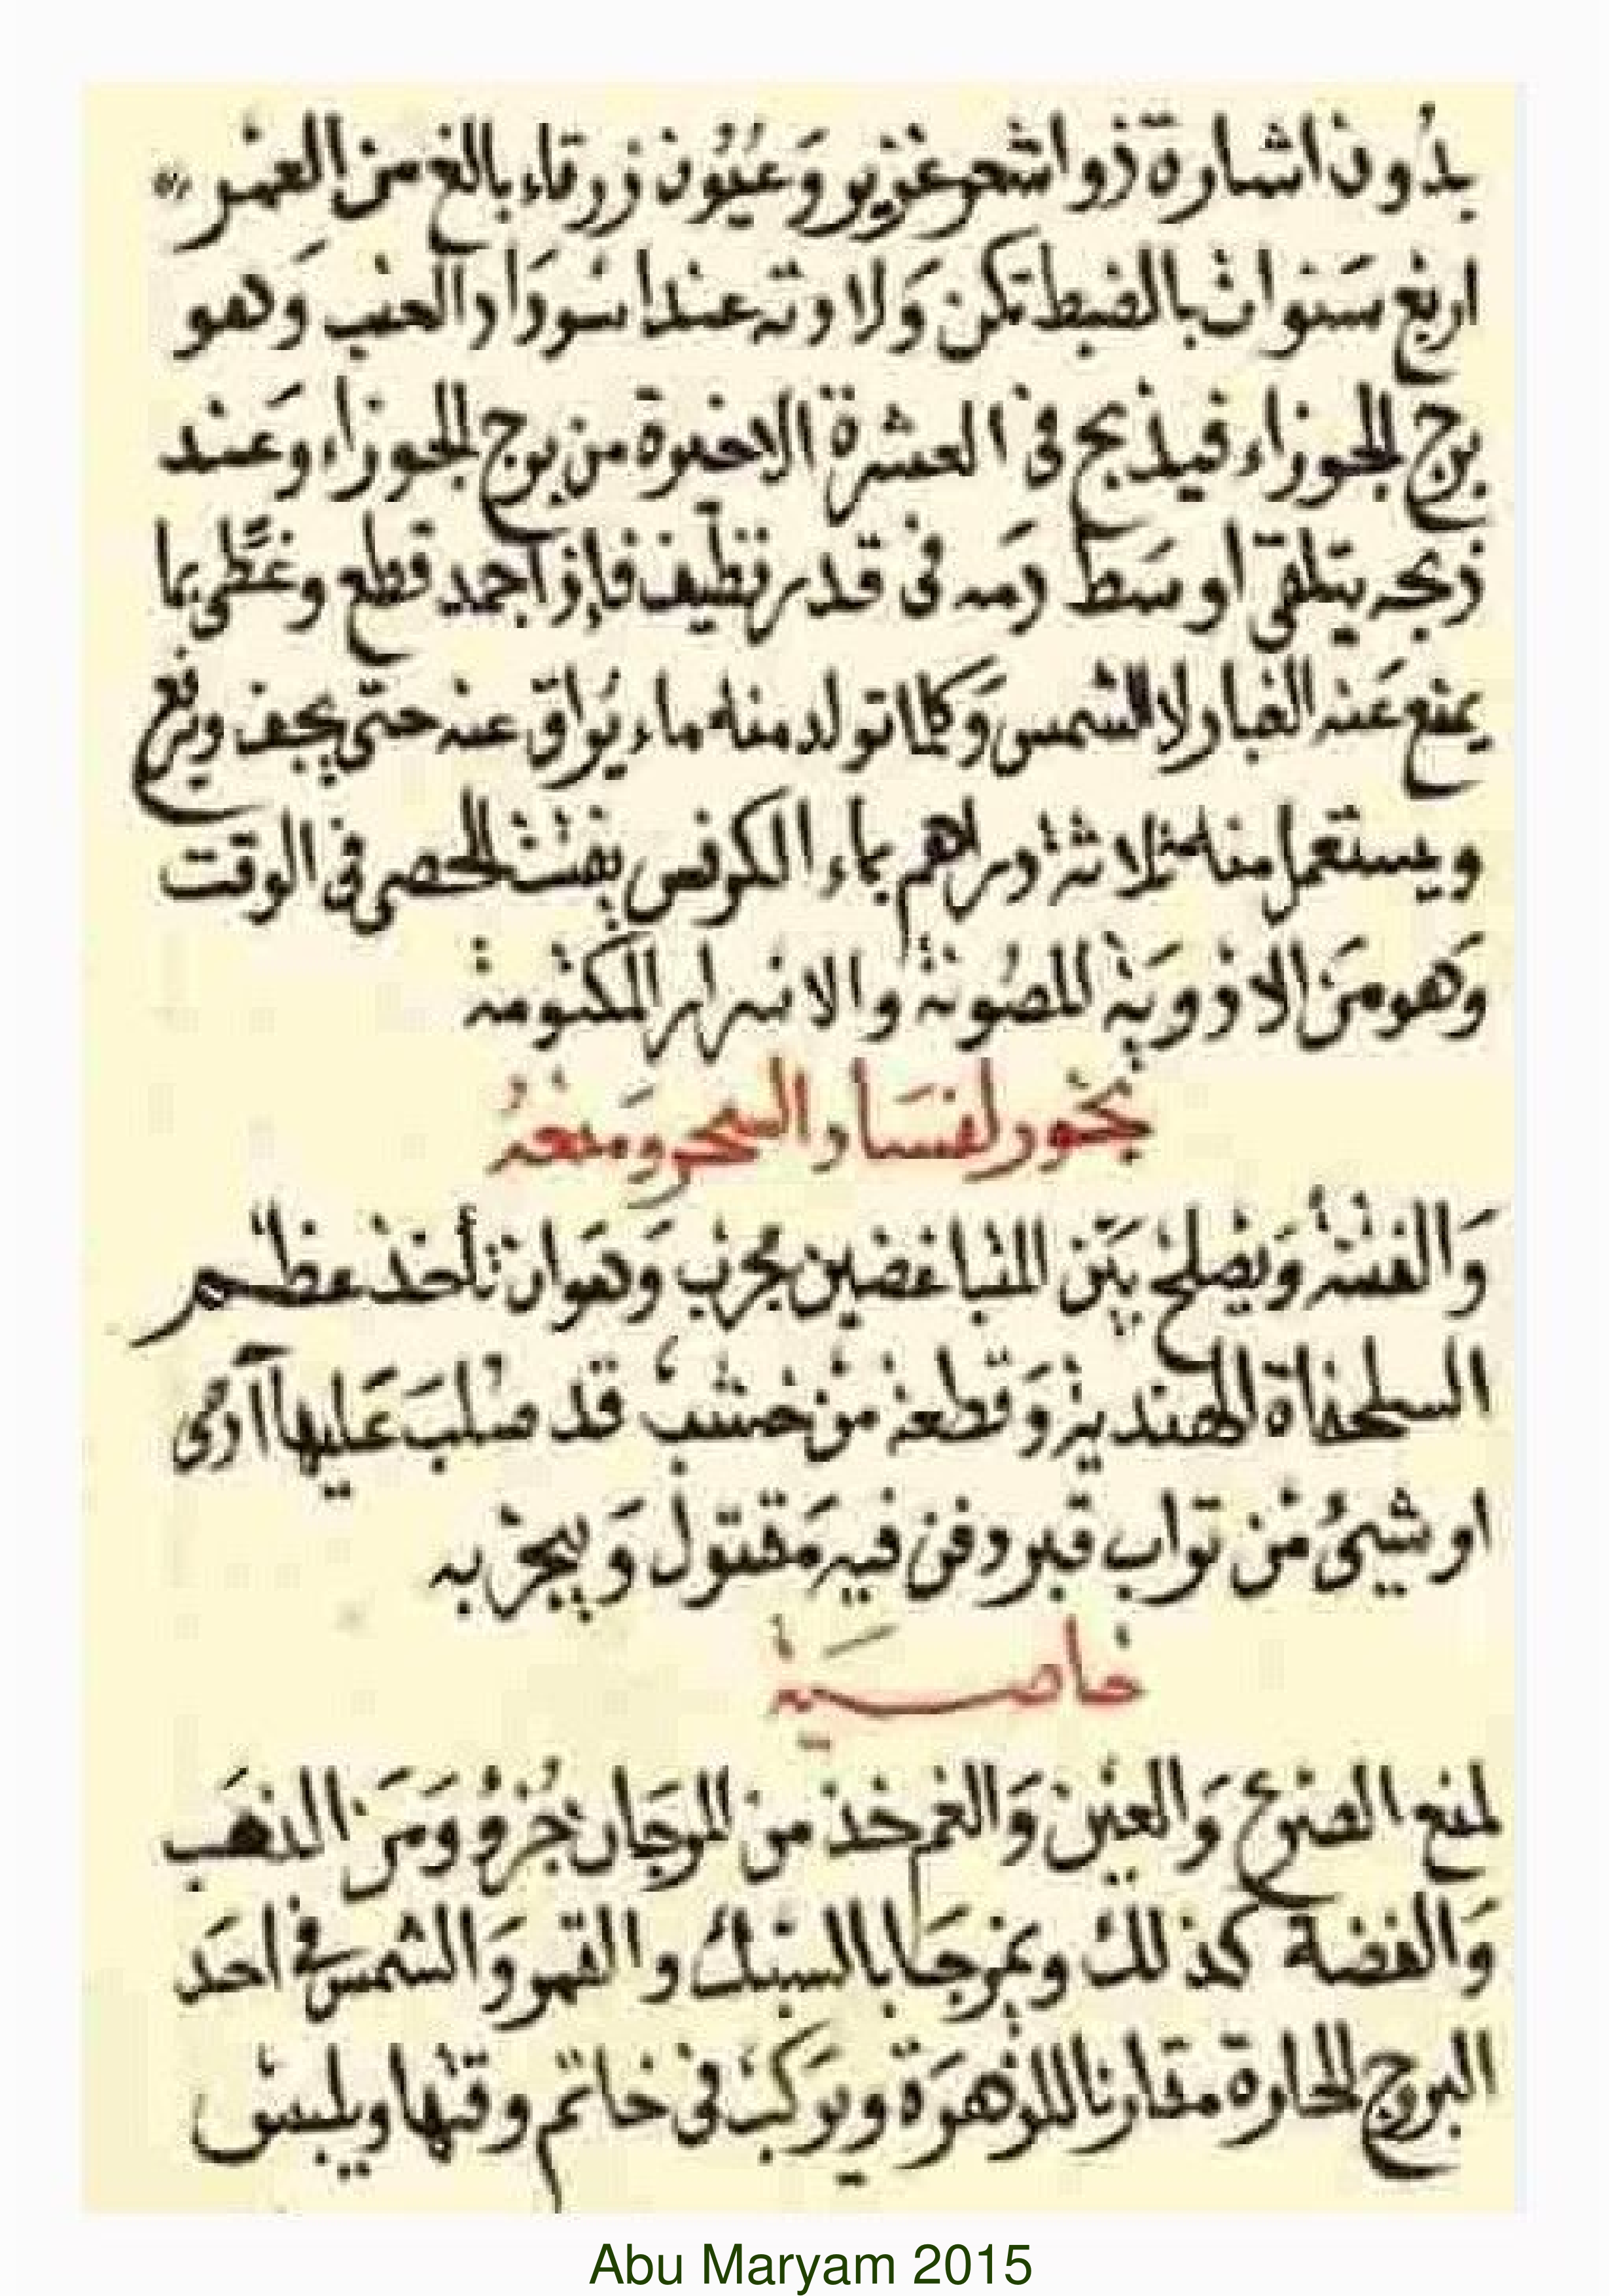 بدُون اشارة ذو اشعر غزير وَعُيُون زرقاء بالغ من العمر
اربع سَنوات بالضبط تكن وَلا دته عند اسودَا د العنب وَهو
برج الجوزاء فيذبح فى العشرة الاخيرة من برج الجوزاء وعَند
ذبحه يتلقى اوسَط دمه فى قدر نظيف فإذا جمد قطع وغطى بما
يمنع عَنه الغبار لا الشمس وَكلما تولد منه ماء يُراق عنه حتى يجف ويرفع
ويستعمل منه ثلاثة دراهم بماء الكرفس يفتت الحصى فى الوقت
وَهو مَن الادوَية المصُونة والاسرار المكتومة
بخور لفسَا د السحر ومَنعهُ
وَالفتنة ويَصلح بَين المتباغضين مجرب وَهوَان تأخذ عظم
السلحفاة الهندية وَقطعة من خشب قد صُلبَ عَليها آدمى
او شيئ من تراب قبر دفن فيه مَقتول وَيبخر به
خاصَية
لمنع الصرع وَالعين وَالغم خذ من المرجان جُزءُ ومَن الذهَب
وَالفضة كذلك ويمزجَا بالسبك والقمر وَالشمس فى احَد
البروج الحارة مقارنا للزهَرة ويركب فى خاتم وقتها ويلبس
Abu Maryam 2015